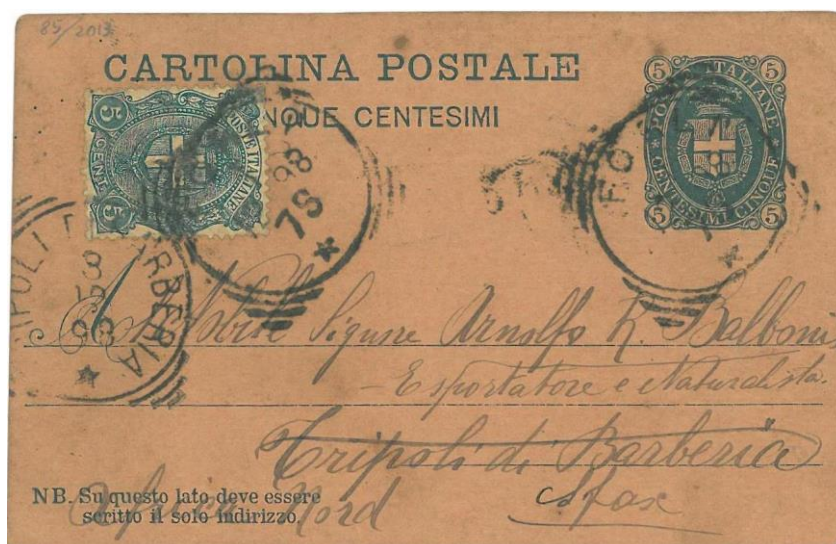 85/2013
CARTOLINA POSTALE
NQUE CENTESIMI
5 POSTE ITALIANE 5
5 CENTESIMI CINQUE 5
5 POSTE ITALIANE
CENT. 5
98
7S
POLI BARBERIA
Nobile Signore Arnolfo R. Balboni
– Esportatore e Naturalista.
Tripoli di Barberia
Sfax
Africa Nord
NB. Su questo lato deve essere
scritto il solo indirizzo.